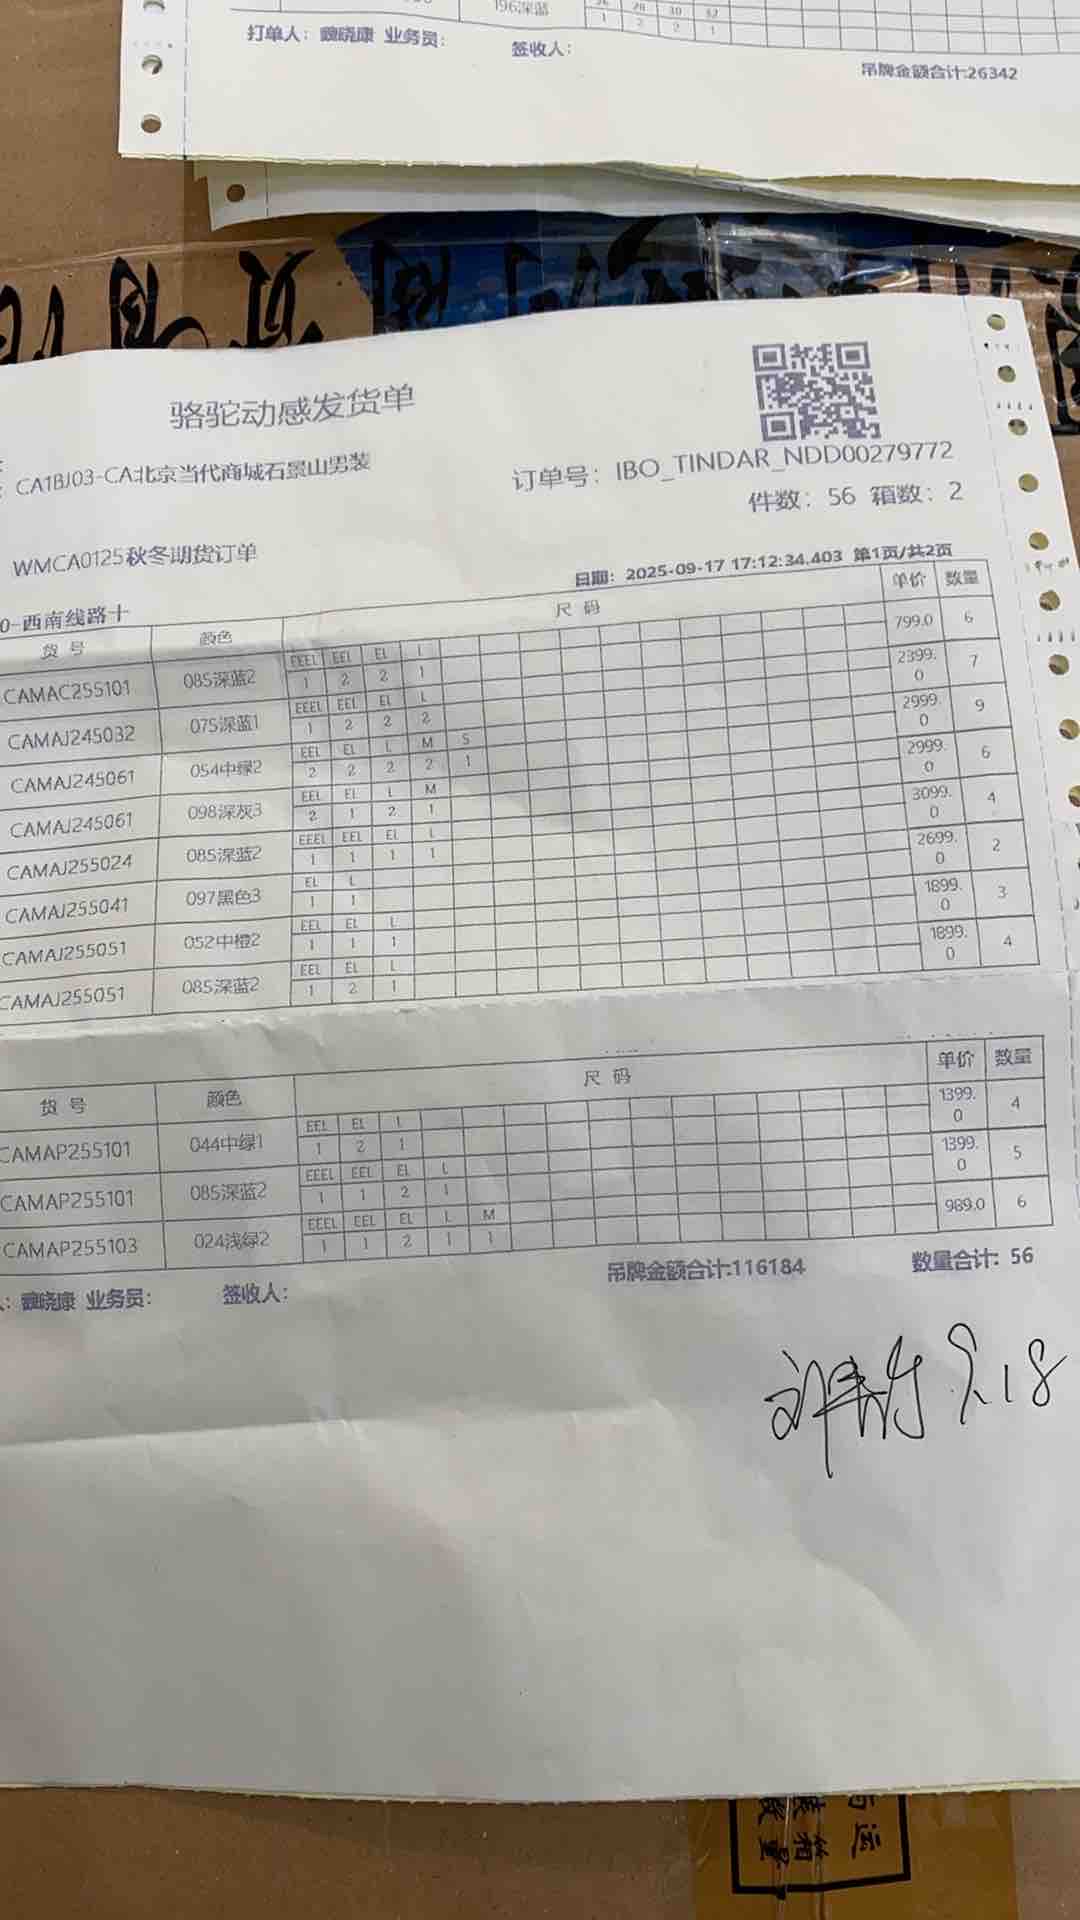 196深蓝
28 30 32
1 2 2 1
打单人: 魏晓康 业务员:
签收人:
吊牌金额合计:26342
骆驼动感发货单
CA1BJ03-CA北京当代商城石景山男装
订单号: IBO_TINDAR_NDD00279772
件数: 56 箱数: 2
WMCA0125秋冬期货订单
日期: 2025-09-17 17:12:34.403 第1页/共2页
0-西南线路十
货号 颜色 尺码 单价 数量
CAMAC255101 085深蓝2 EEEL EEL EL L 799.0 6
1 2 2 1
CAMAJ245032 075深蓝1 EEEL EEL EL L 2399.0 7
1 2 2 2
CAMAJ245061 054中绿2 EEL EL L M S 2999.0 9
2 2 2 2 1
CAMAJ245061 098深灰3 EEL EL L M 2999.0 6
2 1 2 1
CAMAJ255024 085深蓝2 EEEL EEL EL L 3099.0 4
1 1 1 1
CAMAJ255041 097黑色3 EL L 2699.0 2
1 1
CAMAJ255051 052中橙2 EEL EL L 1899.0 3
1 1 1
CAMAJ255051 085深蓝2 EEL EL L 1899.0 4
1 2 1
货号 颜色 尺码 单价 数量
CAMAP255101 044中绿1 EEL EL L 1399.0 4
1 2 1
CAMAP255101 085深蓝2 EEEL EEL EL L 1399.0 5
1 1 2 1
CAMAP255103 024浅绿2 EEEL EEL EL L M 989.0 6
1 1 2 1 1
吊牌金额合计:116184 数量合计: 56
人: 魏晓康 业务员: 签收人:
9.18